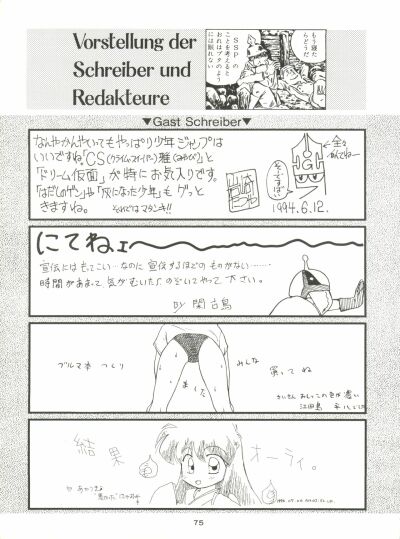 Vorstellung der
Schreiber und
Redakteure
もう寝た
らどうだ
SSPの
ことを考えると
おれはブタのよう
には眠れない
▼Gast Schreiber▼
なんやかんやいいてもやっぱり少年ジャンプは
いいですね。「CS(クライム・スイーパー)雅(みやび)」と
「ドリーム仮面」が特にお気入りです。
「はだしのゲン」や「灰になった少年」も グッと
きますね。 それではマタンキ!!
←全々
1994.6.12.
にてねェ
宣伝にはもってこい…なのに 宣伝するほどのものがない………
時間があまって、気がむいたら、のぞいてやって 下さい。
by 閑古鳥
ブルマ本 つくり
ました
みんな
買ってね
結果
オーライ。
75